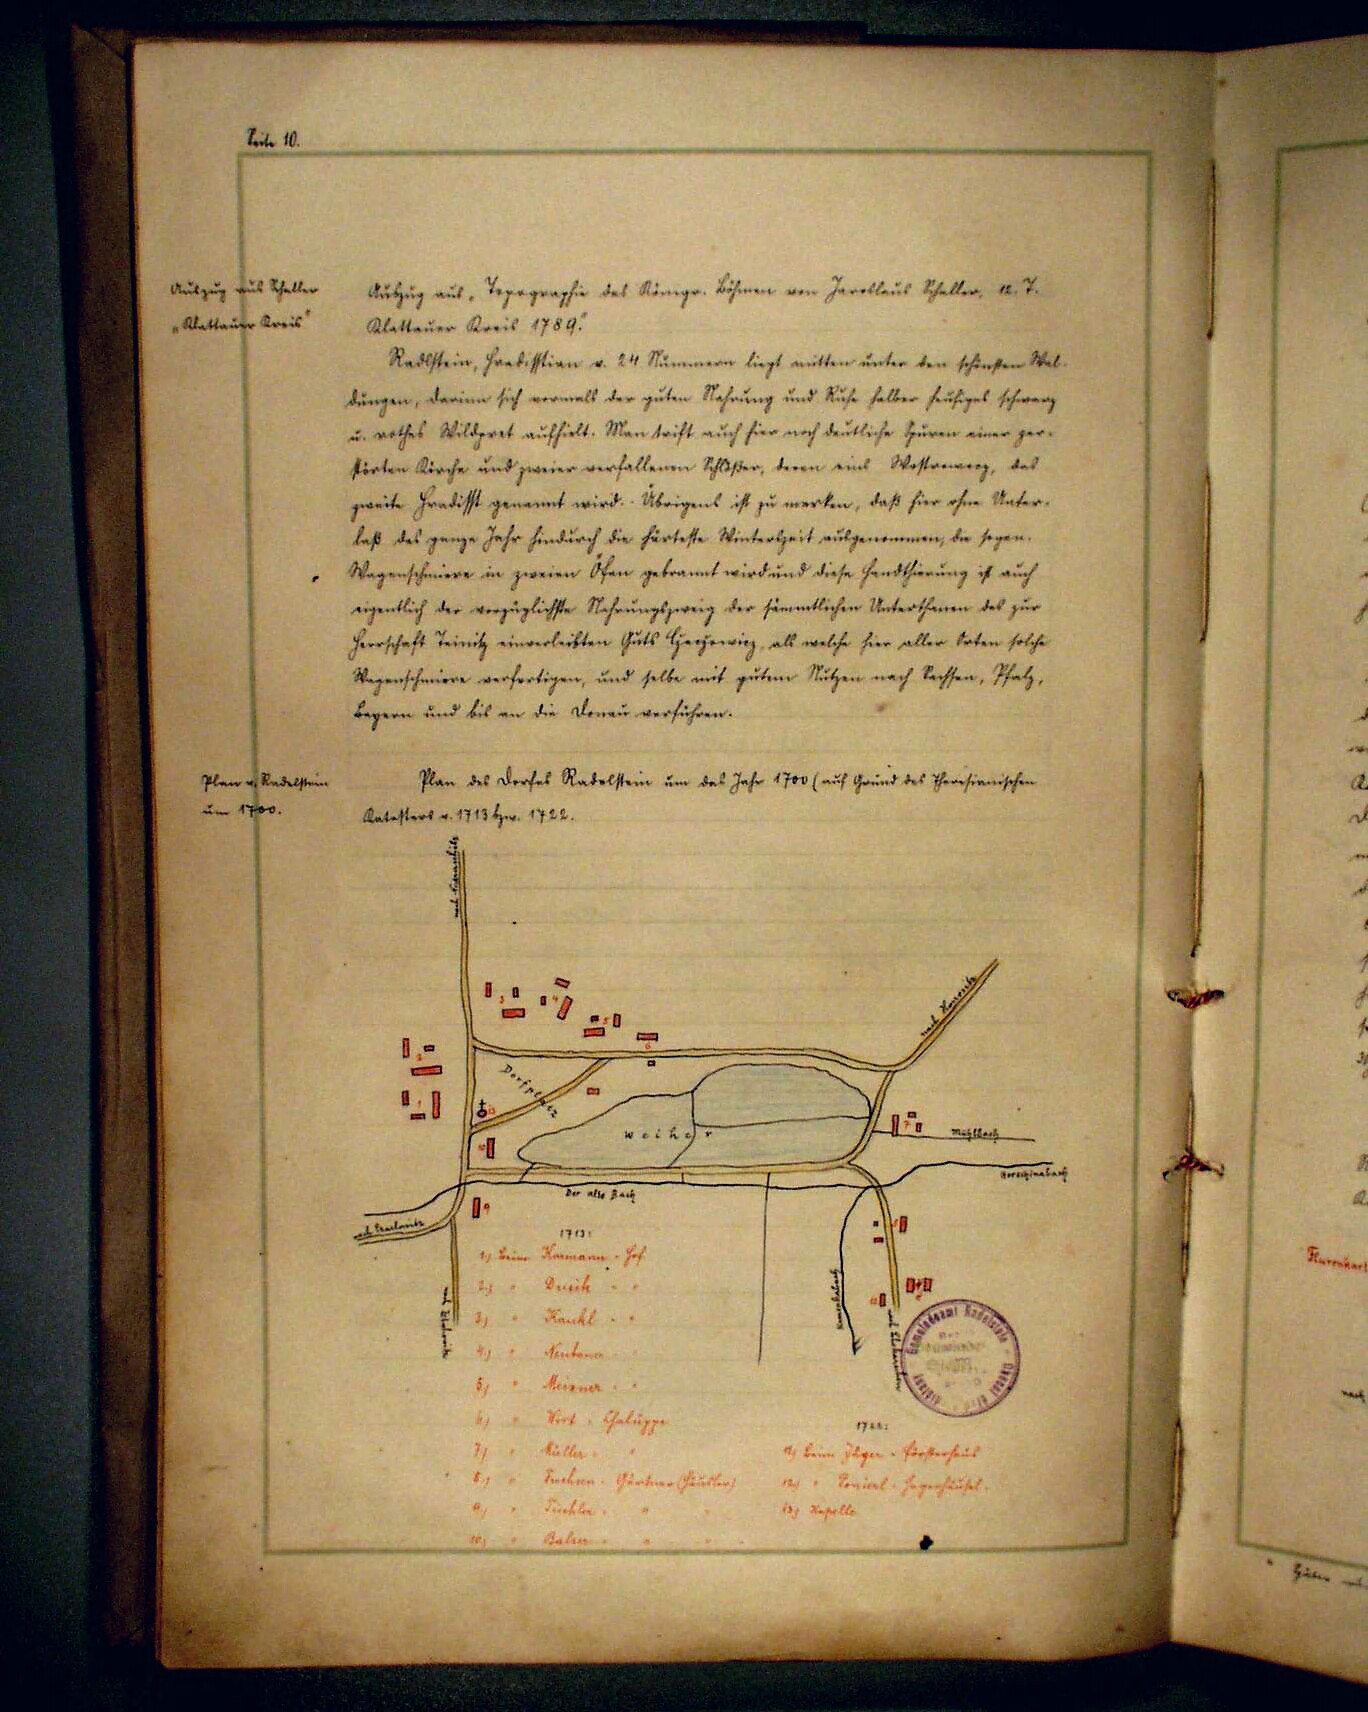 Seite 10.
Auszug aus Schaller
„Klattauer Kreis"
Auszug aus „Topographie des Königr. Böhmen von Jaroslaus Schaller, 12. T.
Klattauer Kreis 1789."
Radlstein, Hradisstian v. 24 Nummern liegt mitten unter den schönsten Wal-
dungen, darinn sich vormals der guten Nahrung und Ruhe halber heufiges schwarz
u. rothes Wildpret aufhielt. Man trift auch hier noch deutliche Spuren einer zer-
störten Kirche und zweier verfallenen Schlößer, deren eins Wostrowerz, das
zweite Hradisst genannt wird. Übrigens ist zu merken, daß hier ohne Unter-
laß das ganze Jahr hindurch die härteste Winterszeit ausgenommen, die sogen.
Wagenschmiere in zweien Öfen gebrannt wird und diese Handthierung ist auch
eigentlich der vorzüglichste Nahrungszweig der sämmtlichen Unterthanen des zur
Herrschaft Teinitz einverleibten Guts, als welche hier aller Orten solche
Wagenschmiere verfertigen, und selbe mit gutem Nutzen nach Sachsen, Pfalz,
Bayern und bis an die Donau verführen.
Plan v. Radelstein
um 1700.
Plan des Dorfes Radelstein um das Jahr 1700 (auf Grund des Theresianischen
Katasters v. 1713 bzw. 1722.
nach
nach
3
4
5
6
2
1
Dorfplatz
13
10
Weiher
7
Mühlbach
Der alte Bach
9
8
11
12
1713:
1.) beim Hof
2.) " " "
3.) " " "
4.) " " "
5.) " Meixner - "
6.) " Wirt - Chaluppe
7.) " Müller - "
8.) " Fuchsen - Gärtner (Häusler)
9.) " Tischler - " "
10.) " Balzer - " "
1722:
11.) beim Jäger - Försterhaus
12.) " - Hegerhäusel.
13.) Kapelle
Gemeindeamt Radelstein